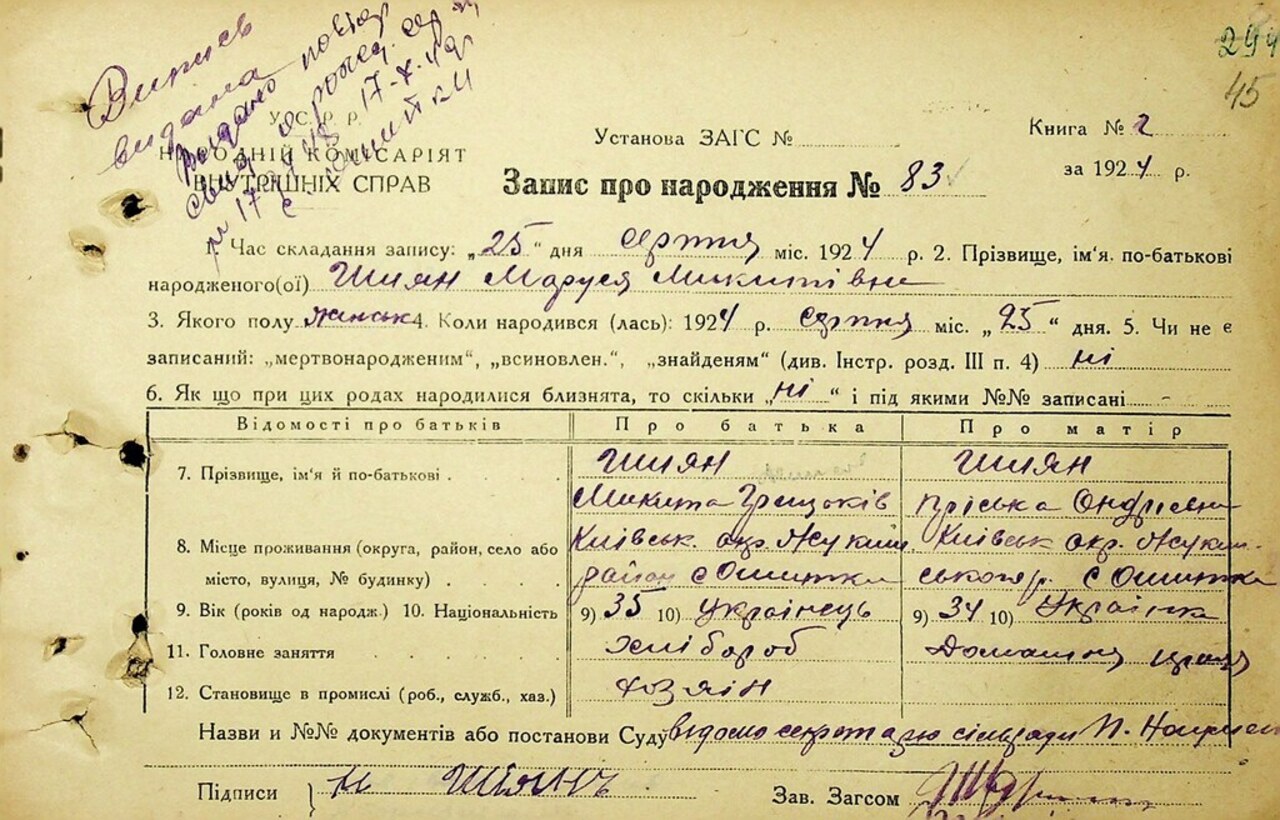 294
45
Випись
видана повтор
Видано
17-X-49
У. С. Р. Р.
НАРОДНІЙ КОМІСАРІЯТ
ВНУТРІШНІХ СПРАВ
Установа ЗАГС №
Книга № 2
за 1924 р.
Запис про народження № 83
1. Час складання запису: „25“ дня серпня міс. 1924 р. 2. Прізвище, ім'я. по-батькові
народженого(ої) Шиян Маруся Микитівна
3. Якого полу жіноськ 4. Коли народився (лась): 1924 р. серпня міс. „25“ дня. 5. Чи не є
записаний: „мертвонародженим“, „всиновлен.“, „знайденям“ (див. Інстр. розд. III п. 4) ні
6. Як що при цих родах народилися близнята, то скільки „ні“ і під якими №№ записані -
Відомості про батьків Про батька Про матір
7. Прізвище, ім'я й по-батькові Шиян Шиян
Микита Грицьків Пріська Ондрієвна
8. Місце проживання (округа, район, село або Київськ. окр. Жукин. Київськ окр. Жукин-
місто, вулиця, № будинку) район с Ошитки ського р. с Ошитки
9. Вік (років од народж.) 10. Національність 9) 35 10) Українець 9) 34 10) Українка
11. Головне заняття хлібороб Домашня праця
12. Становище в промислі (роб., служб., хаз.) хозяін
Назви и №№ документів або постанови Суду відомо секретарю сільради П.
Підписи М Шіянъ Зав. Загсом